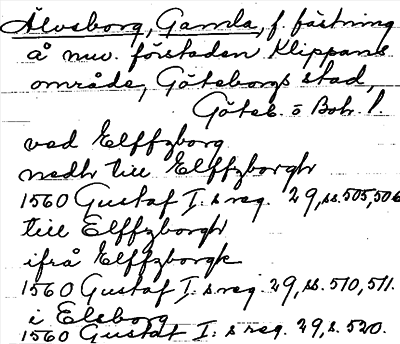 Älvsborg, Gamla, f. fästning
å nuv. förstaden Klippans
område, Göteborgs stad,
Göteb. o Boh. l.
ved Elffzborg
nedh till Elffzborgh
1560 Gustaf I:s reg. 29, ss. 505, 506
till Elffzborgh
ifrå Elffzborgk
1560 Gustaf I:s reg. 29, ss. 510, 511.
i Elsborg
1560 Gustaf I:s reg. 29, s. 520.